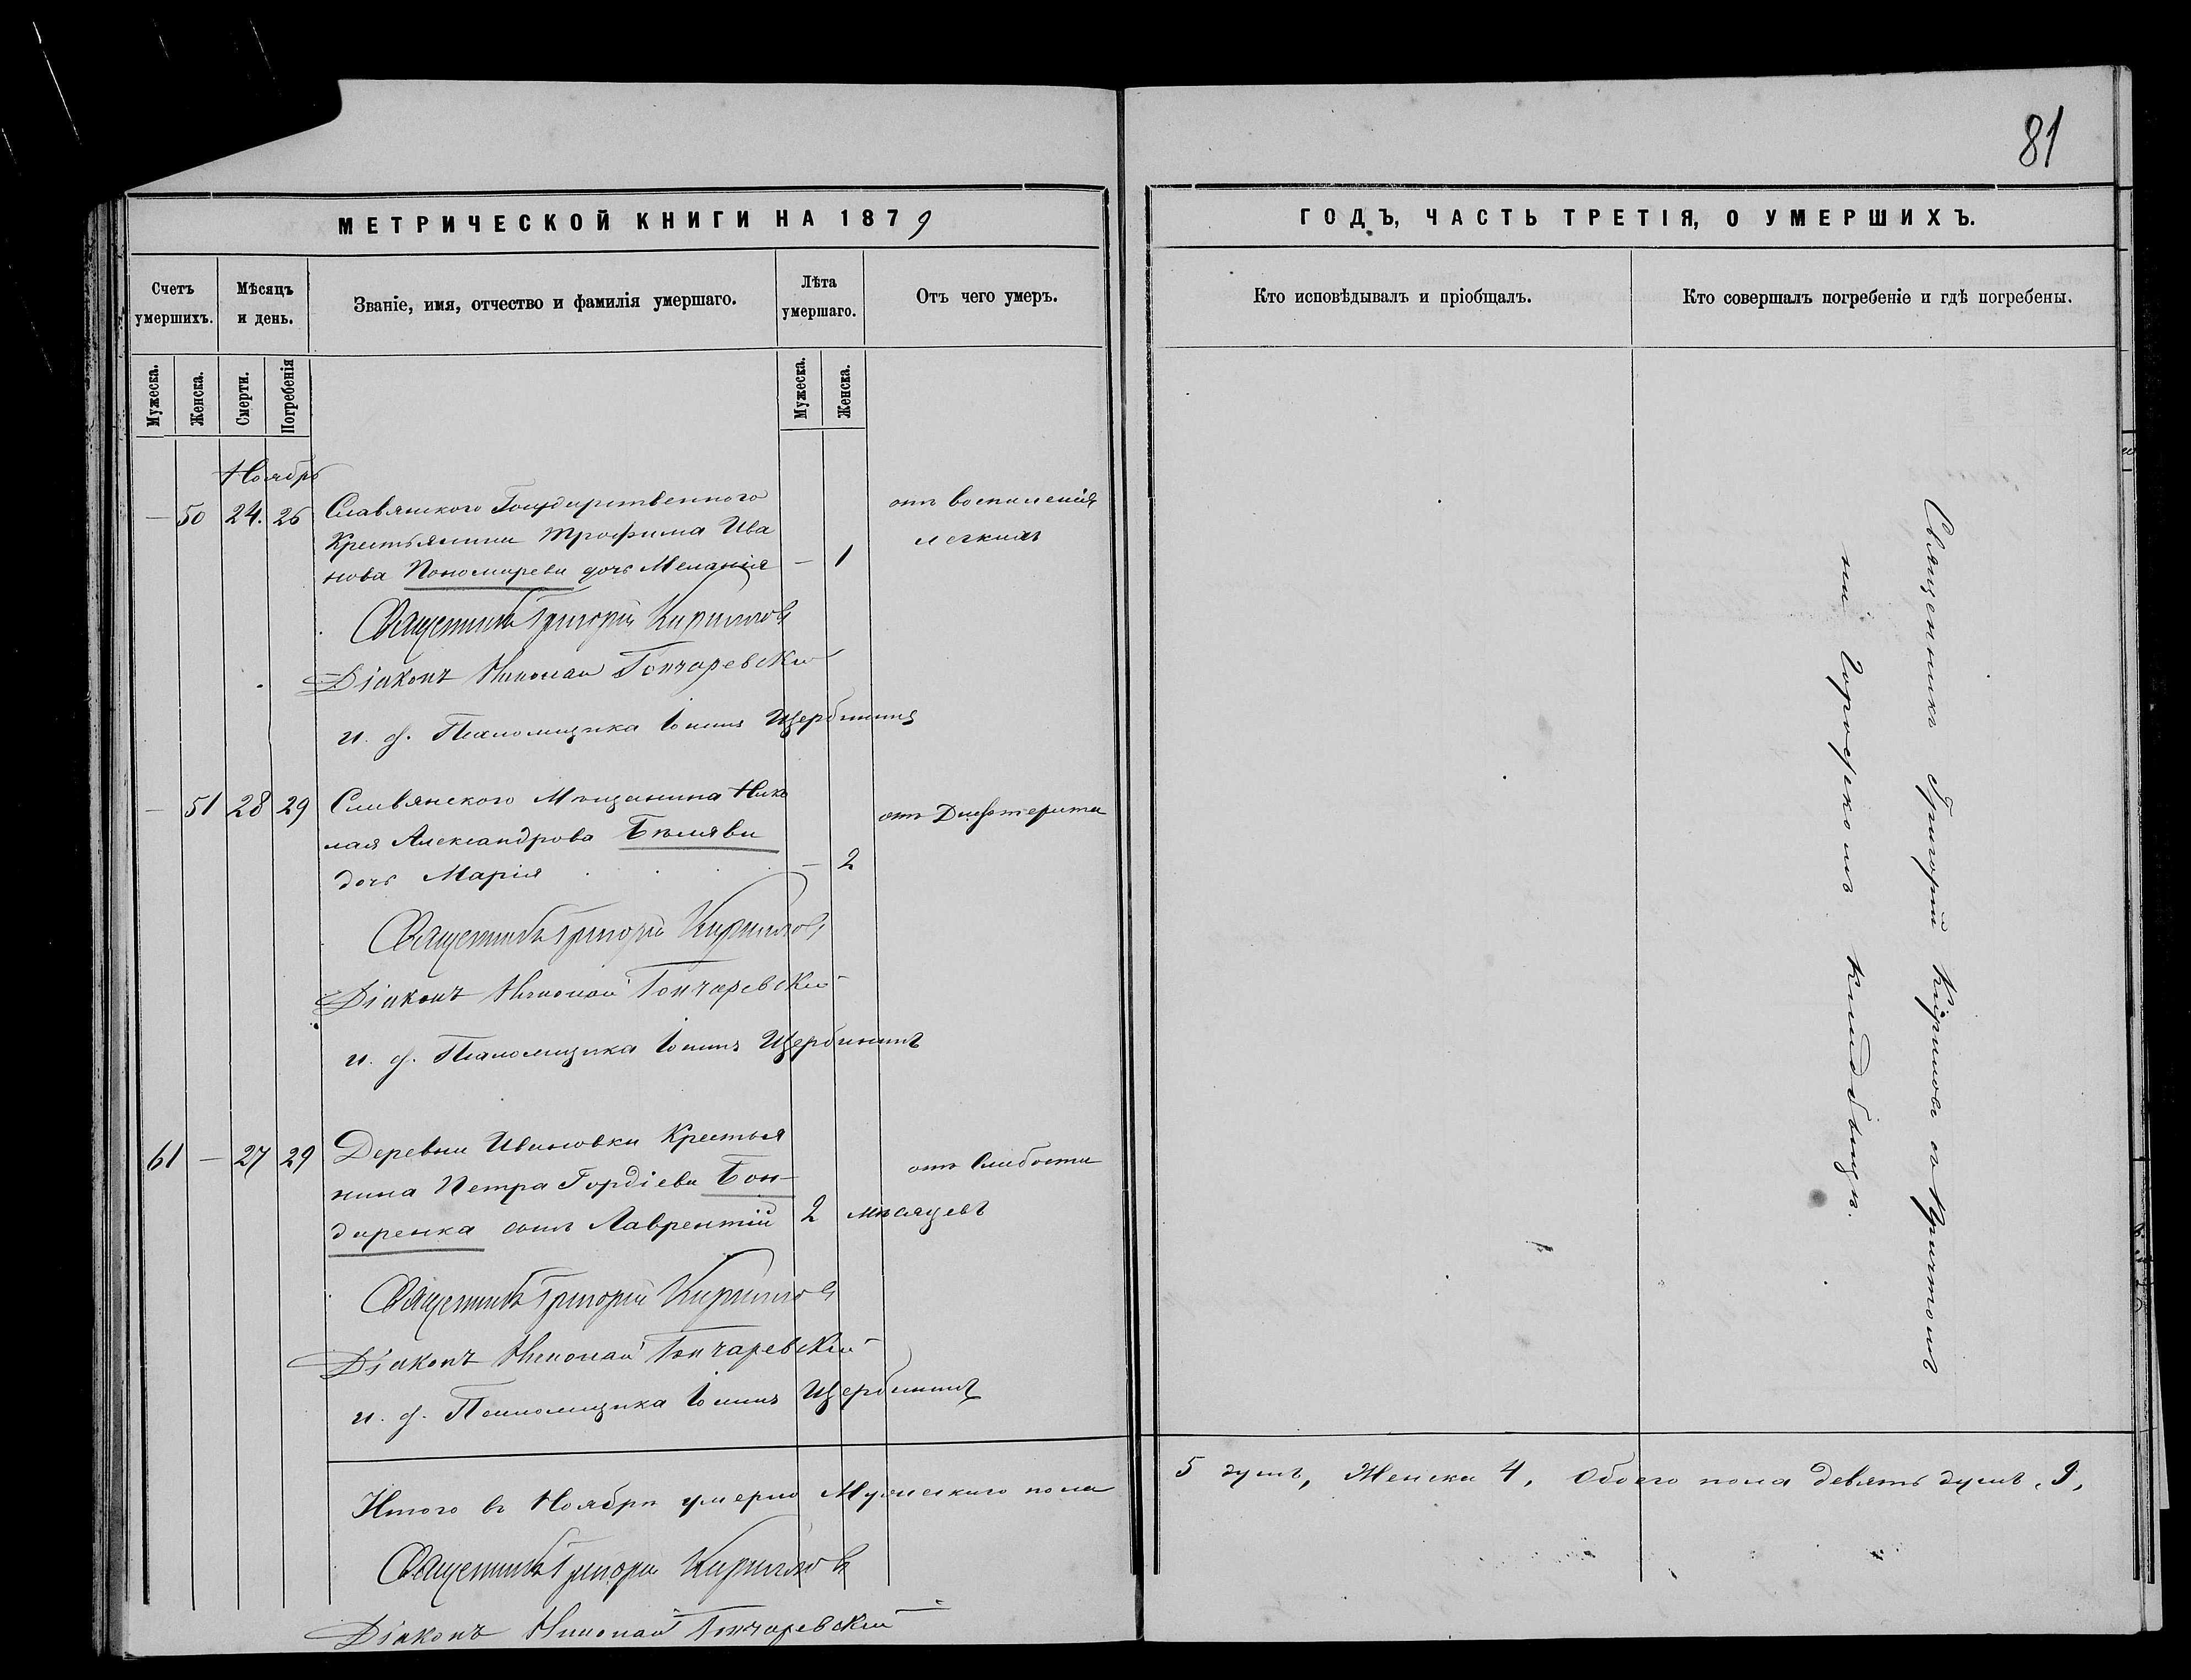 81
МЕТРИЧЕСКОЙ КНИГИ НА 1879
Счетъ умершихъ.
Мѣсяцъ и день.
Званіе, имя, отчество и фамилія умершаго.
Лѣта умершаго.
Отъ чего умеръ.
Мужеска.
Женска.
Смерти.
Погребенія
Мужеска.
Женска.
Ноябрь
— 50 24. 26 Славянского Государственного
Крестьянина Трофима Ива
нова Пономарева дочь Меланія — 1
отъ воспаленія
легкихъ
Священникъ Григорій Кирилловъ
Діаконъ Николай Гончаревскій
и. д. Псаломщика Іоаннъ Щербининъ
— 51 28 29 Славянского Мѣщанина Нико
лая Александрова Бѣляева
дочь Марія — 2
отъ Дифтерита
Священникъ Григорій Кирилловъ
Діаконъ Николай Гончаревскій
и. д. Псаломщика Іоаннъ Щербининъ
61 — 27 29 Деревни Ивановки Крестья
нина Петра Гордіева Бон-
даренка сынъ Лаврентій 2 мѣсяцевъ
отъ Слабости
Священникъ Григорій Кирилловъ
Діаконъ Николай Гончаревскій
и. д. Псаломщика Іоаннъ Щербининъ
Итого въ Ноябрѣ умерло Мужескаго пола
Священникъ Григорій Кирилловъ
Діаконъ Николай Гончаревскій
ГОДЪ, ЧАСТЬ ТРЕТІЯ, О УМЕРШИХЪ.
Кто исповѣдывалъ и пріобщалъ.
Кто совершалъ погребеніе и гдѣ погребены.
Священникъ Григорій Кирилловъ съ Причтомъ
на Городскомъ Кладбищѣ.
5 душъ, Женска 4, Обоего пола девять душъ, 9,